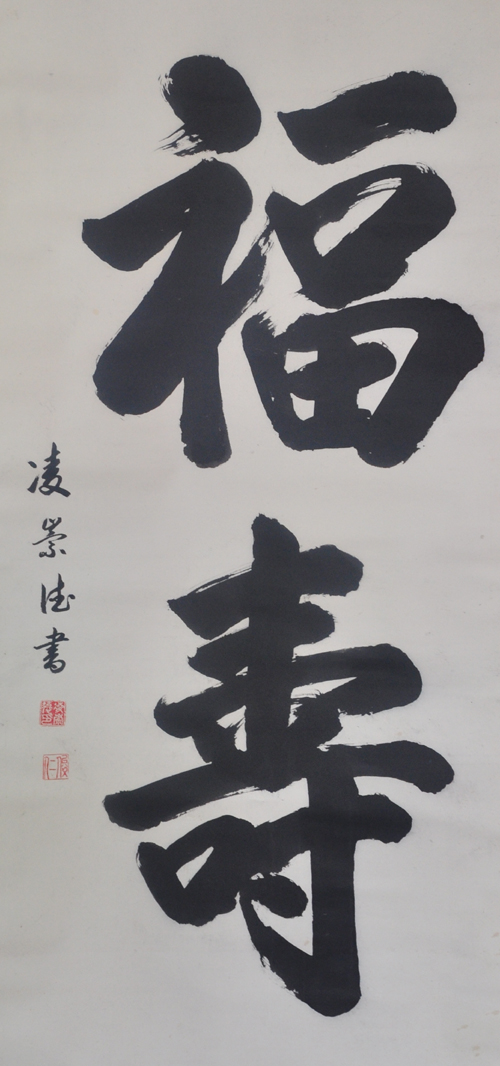 福壽
凌崇德書